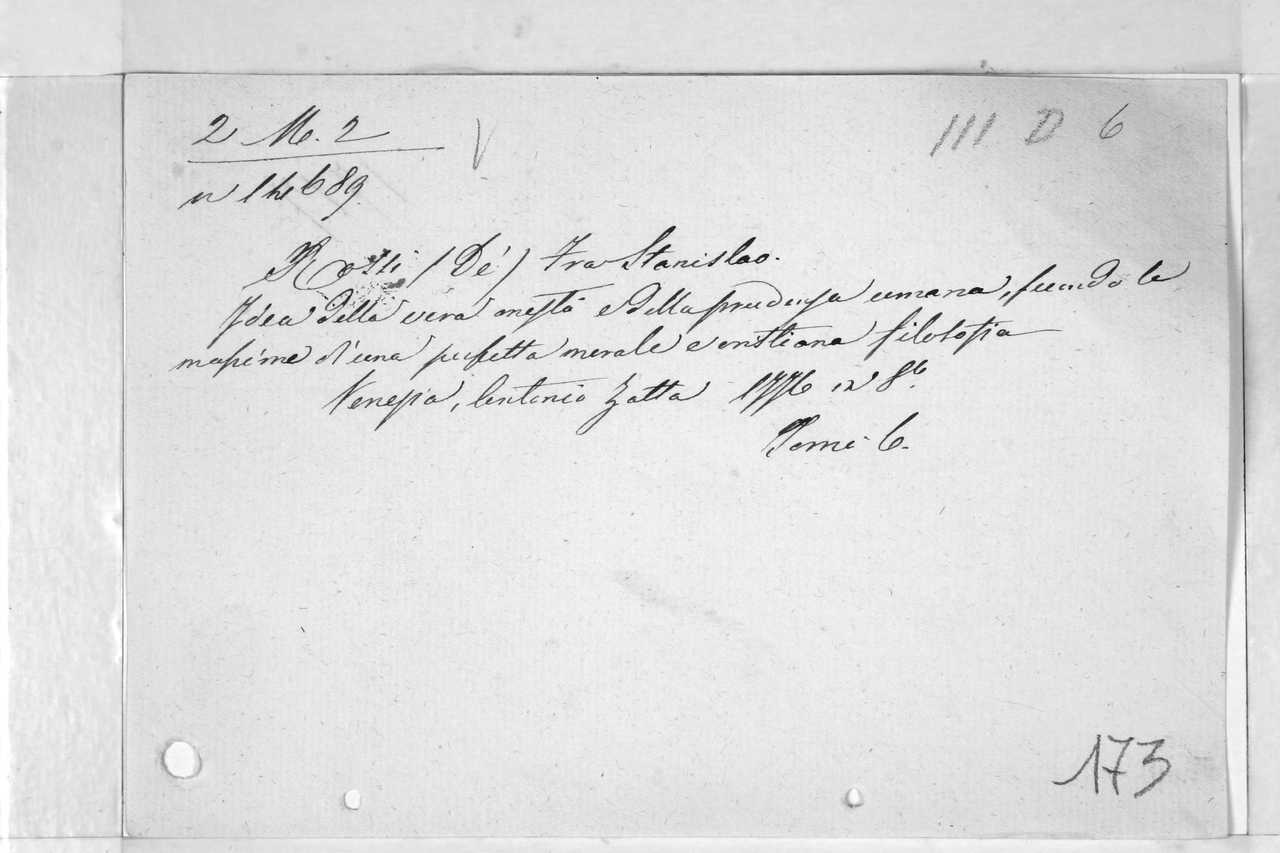 2 M. 2
V
III D 6
Rossi (De') Fra Stanislao.
Idea della vera onestà e della prudenza umana, secondo le
massime d'una perfetta morale e cristiana filosofia
Venezia, Antonio Zatta 1776 in 8º.
Tomi 6.
173